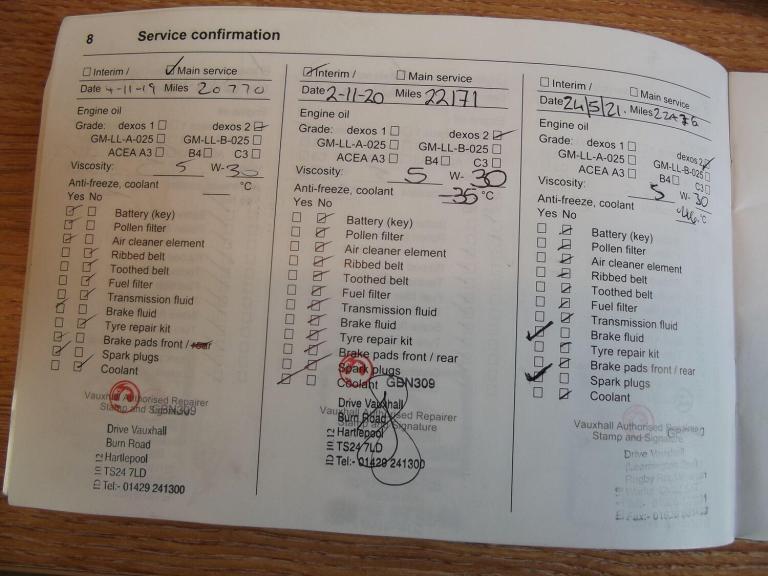 8 Service confirmation
Interim / Main service
Date 4-11-19 Miles 20770
Engine oil
Grade: dexos 1 dexos 2
GM-LL-A-025 GM-LL-B-025
ACEA A3 B4 C3
Viscosity: 5 W- 30
Anti-freeze, coolant °C
Yes No
Battery (key)
Pollen filter
Air cleaner element
Ribbed belt
Toothed belt
Fuel filter
Transmission fluid
Brake fluid
Tyre repair kit
Brake pads front / rear
Spark plugs
Coolant
Vauxhall Authorised Repairer
Stamp and Signature
GBN309
Drive Vauxhall
Burn Road
Hartlepool
TS24 7LD
Tel:- 01429 241300
Interim / Main service
Date 2-11-20 Miles 22171
Engine oil
Grade: dexos 1 dexos 2
GM-LL-A-025 GM-LL-B-025
ACEA A3 B4 C3
Viscosity: 5 W- 30
Anti-freeze, coolant -35 °C
Yes No
Battery (key)
Pollen filter
Air cleaner element
Ribbed belt
Toothed belt
Fuel filter
Transmission fluid
Brake fluid
Tyre repair kit
Brake pads front / rear
Spark plugs
Coolant GBN309
Vauxhall Authorised Repairer
Stamp and Signature
Drive Vauxhall
Burn Road
Hartlepool
TS24 7LD
Tel:- 01429 241300
Interim / Main service
Date 24/5/21. Miles
Engine oil
Grade: dexos 1 dexos 2
GM-LL-A-025 GM-LL-B-025
ACEA A3 B4 C3
Viscosity: 5 W- 30
Anti-freeze, coolant °C
Yes No
Battery (key)
Pollen filter
Air cleaner element
Ribbed belt
Toothed belt
Fuel filter
Transmission fluid
Brake fluid
Tyre repair kit
Brake pads front / rear
Spark plugs
Coolant
Vauxhall Authorised Repairer
Stamp and Signature
Drive Vauxhall